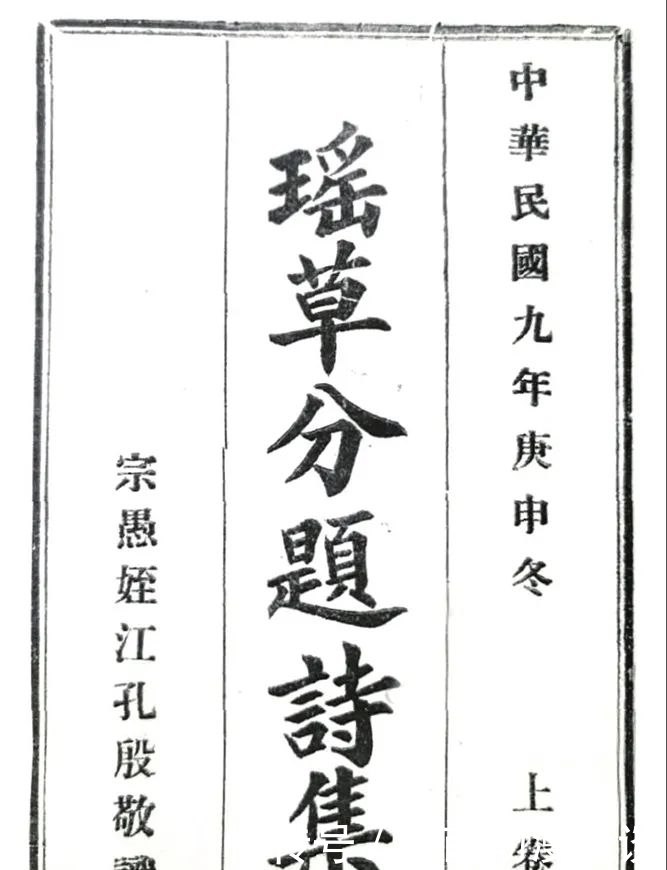 中華民國九年庚申冬
上卷
瑶草分題詩集
宗愚姪江孔殷敬